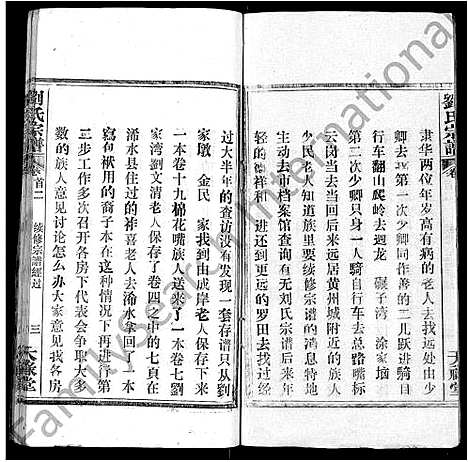 劉氏宗譜
卷
隶华两位年岁高有病的老人去找远处由少
卿去来第一次少卿同作善的二儿跃进骑自
行車翻山爬岭去廻龙 碾子湾 涂家墩
第二次少卿只身一人騎自行车去总路嘴标
云岗去当天回后来又去迴居黄州城附近的族人
少民等人知道族里要续修宗谱的消息特地
主动去市档案館查询有无刘氏宗谱后来
轻的德祥和 进还到更远的罗田去找经
天祿堂
过大半年的查访没有发现一套存谱只从到
家墩 金民 家我到由成岸老人保存了
一本卷十九棉花嘴族人送来了一本卷七劉
家湾劉文清老人保存了卷四中的七頁在
浠水县住过的神喜老人去浠水拿回了一本
寫句袱用的裔子本在这种情況下再进行第
三步工作多次召开各房下代表会爭取大多
数的族人意见讨论怎么办大家意见我各房
劉氏宗譜
卷首二
续修宗譜经过
三
天祿堂
Familysearch International